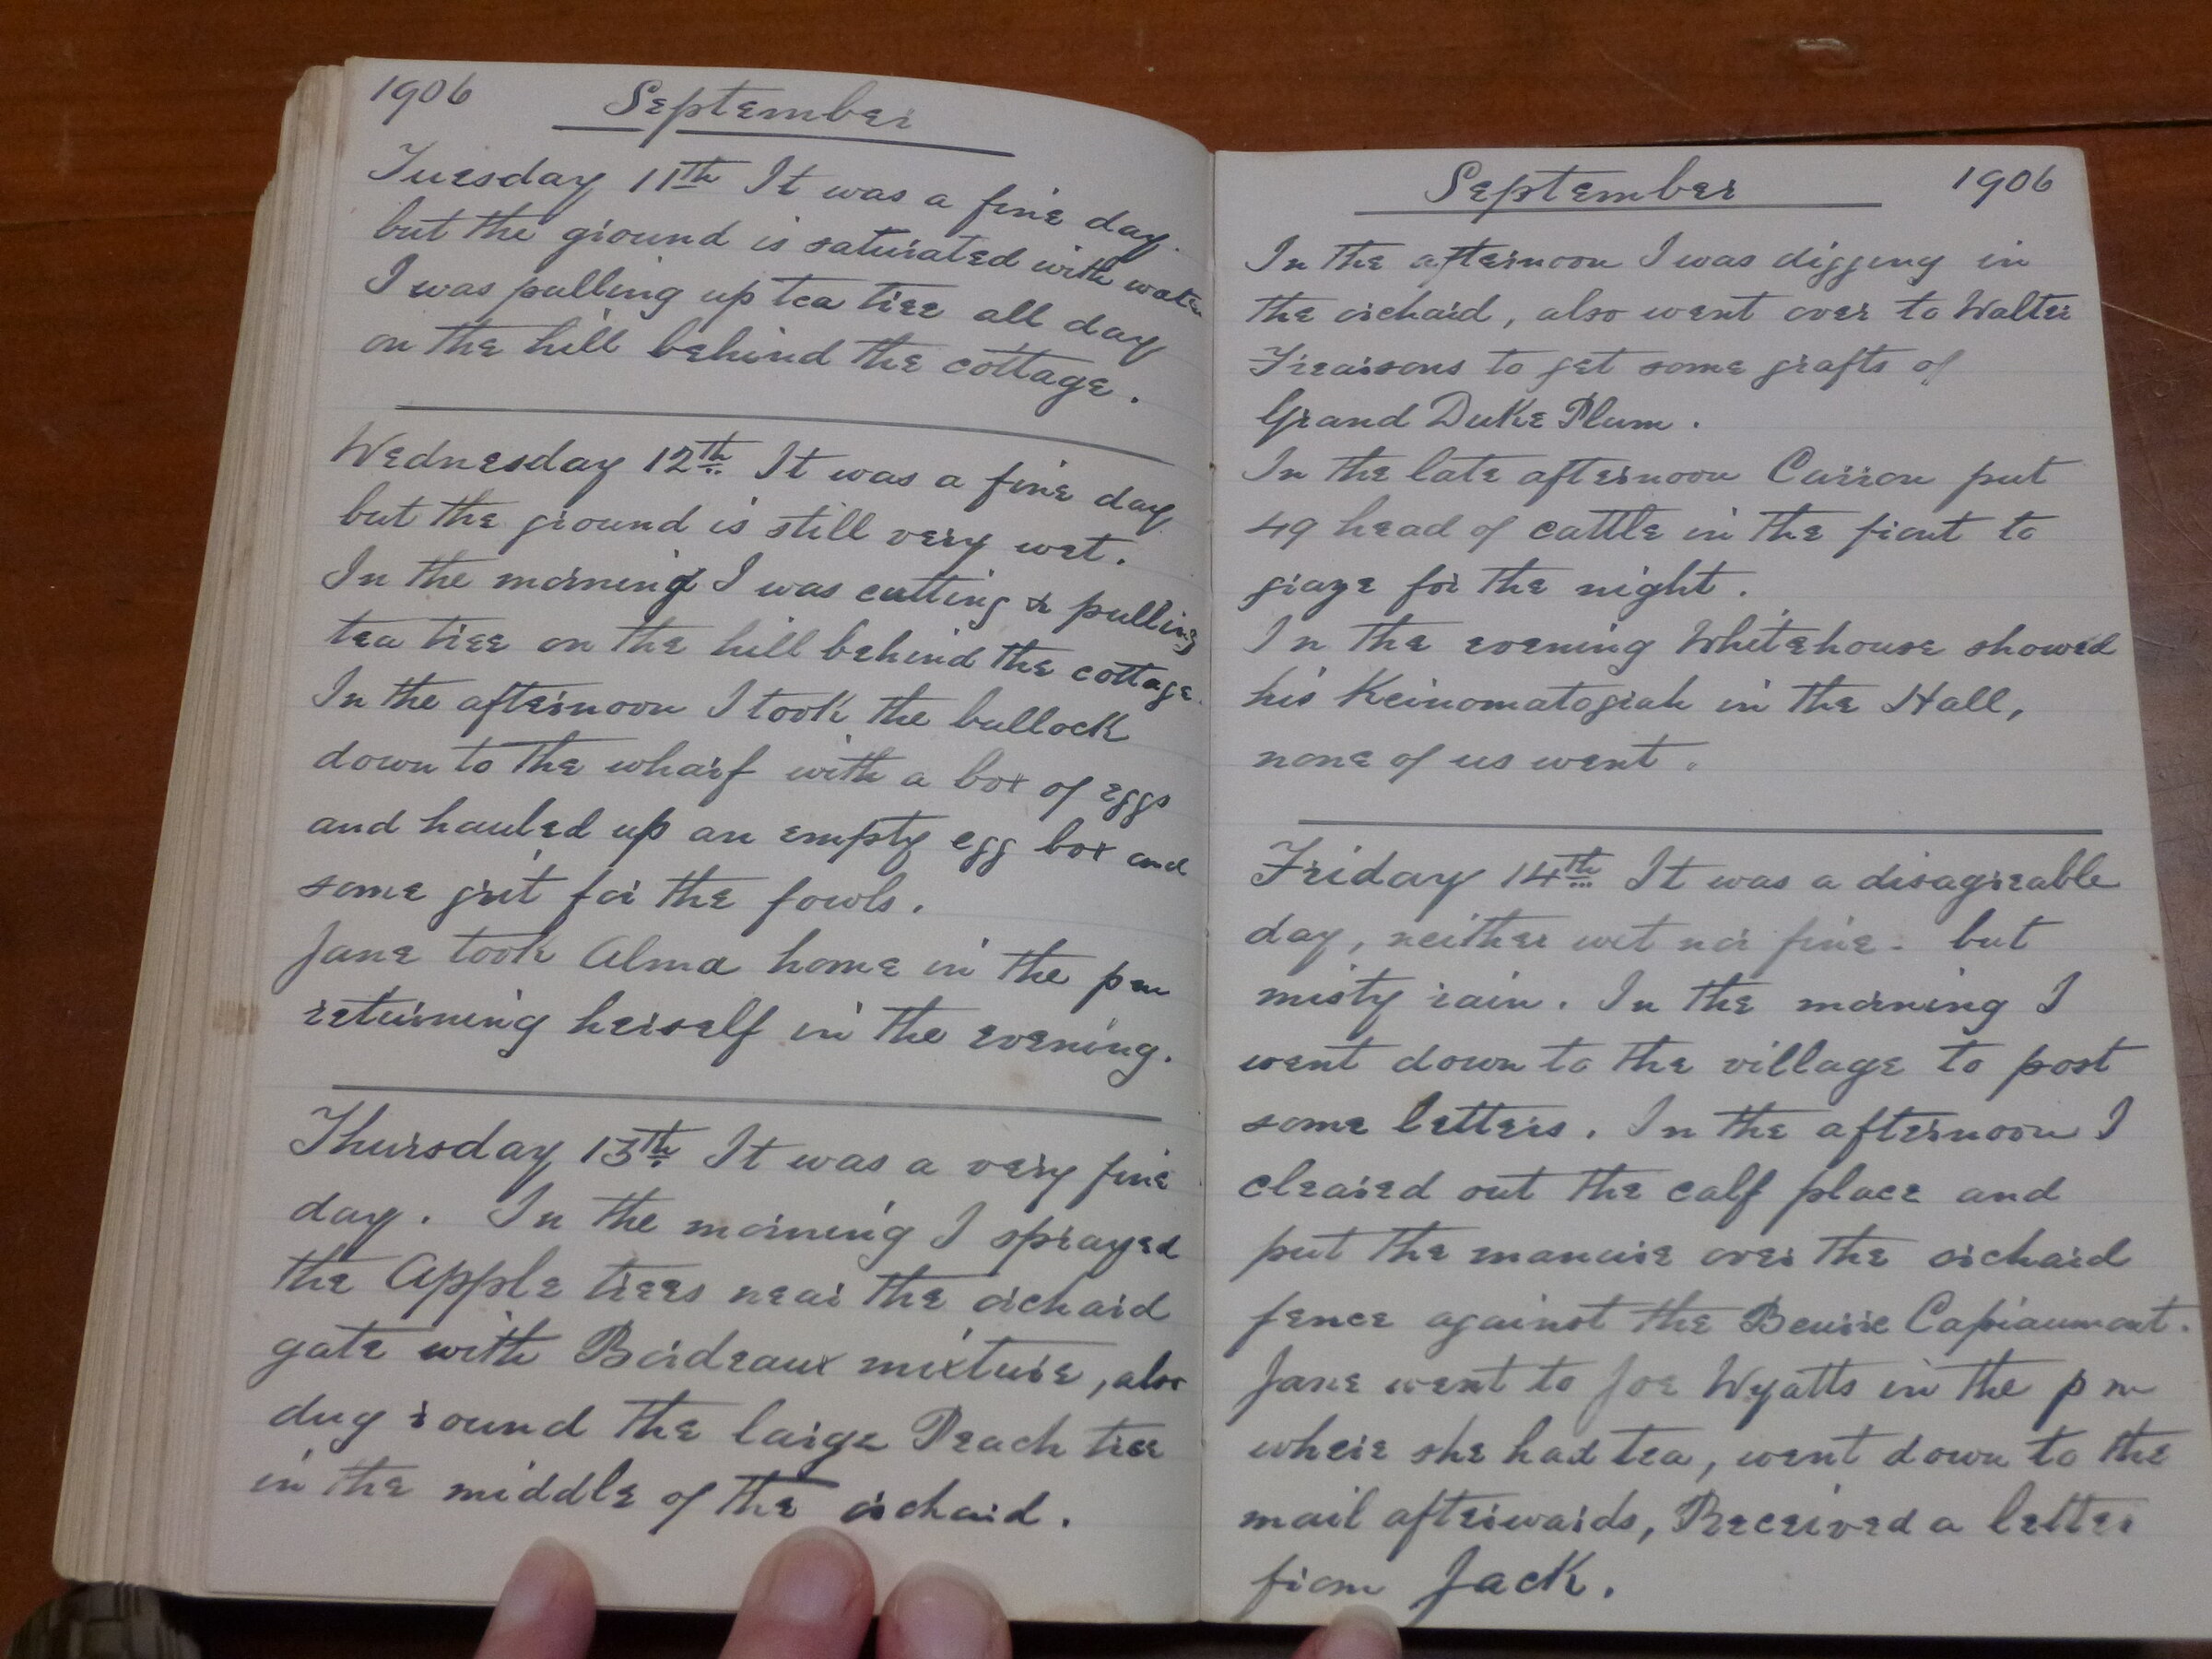 1906 September
Tuesday 11th It was a fine day.
but the ground is saturated with water
I was pulling up tea tree all day
on the hill behind the cottage.
Wednesday 12th. It was a fine day
but the ground is still very wet.
In the morning I was cutting & pulling
tea tree on the hill behind the cottage.
In the afternoon I took the bullock
down to the wharf with a box of eggs
and hauled up an empty egg box and
some grit for the fowls.
Jane took Alma home in the pm
returning herself in the evening.
Thursday 13th It was a very fine
day. In the morning I sprayed
the Apple trees near the orchard
gate with Bordeaux mixture, also
dug round the large Peach tree
in the middle of the orchard.
September 1906
In the afternoon I was digging in
the orchard, also went over to Walter
Frearsons to get some grafts of
Grand Duke Plum.
In the late afternoon Curron put
49 head of cattle in the front to
graze for the night.
In the evening Whitehouse showed
his Keinomatograh in the Hall,
none of us went.
Friday 14th It was a disagreable
day, neither wet nor fine. but
misty rain. In the morning I
went down to the village to post
some letters. In the afternoon I
cleared out the calf place and
put the manure over the orchard
fence against the Beurre Capiaumont.
Jane went to Joe Wyatts in the pm
where she had tea, went down to the
mail afterwards, Received a letter
from Jack.